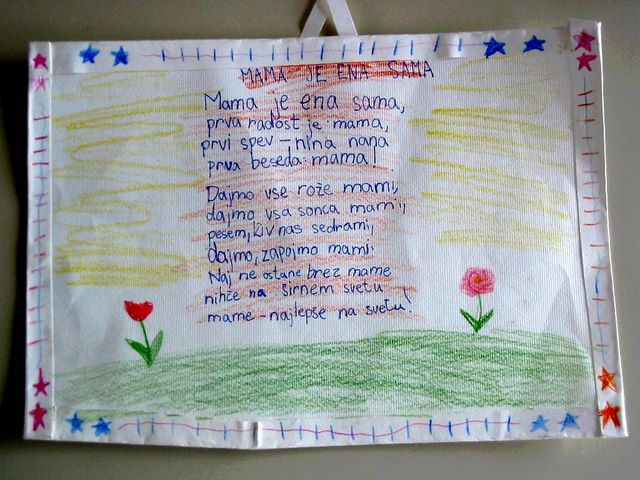 MAMA JE ENA SAMA
Mama je ena sama,
prva radost je mama,
prvi spev – nina nana
prva beseda mama!
Dajmo vse rože mami,
dajmo vsa sonca mami,
pesem, ki v nas sedrami,
dajmo, zapojmo mami.
Naj ne ostane brez mame
nihče na širnem svetu
mame – najlepše na svetu!